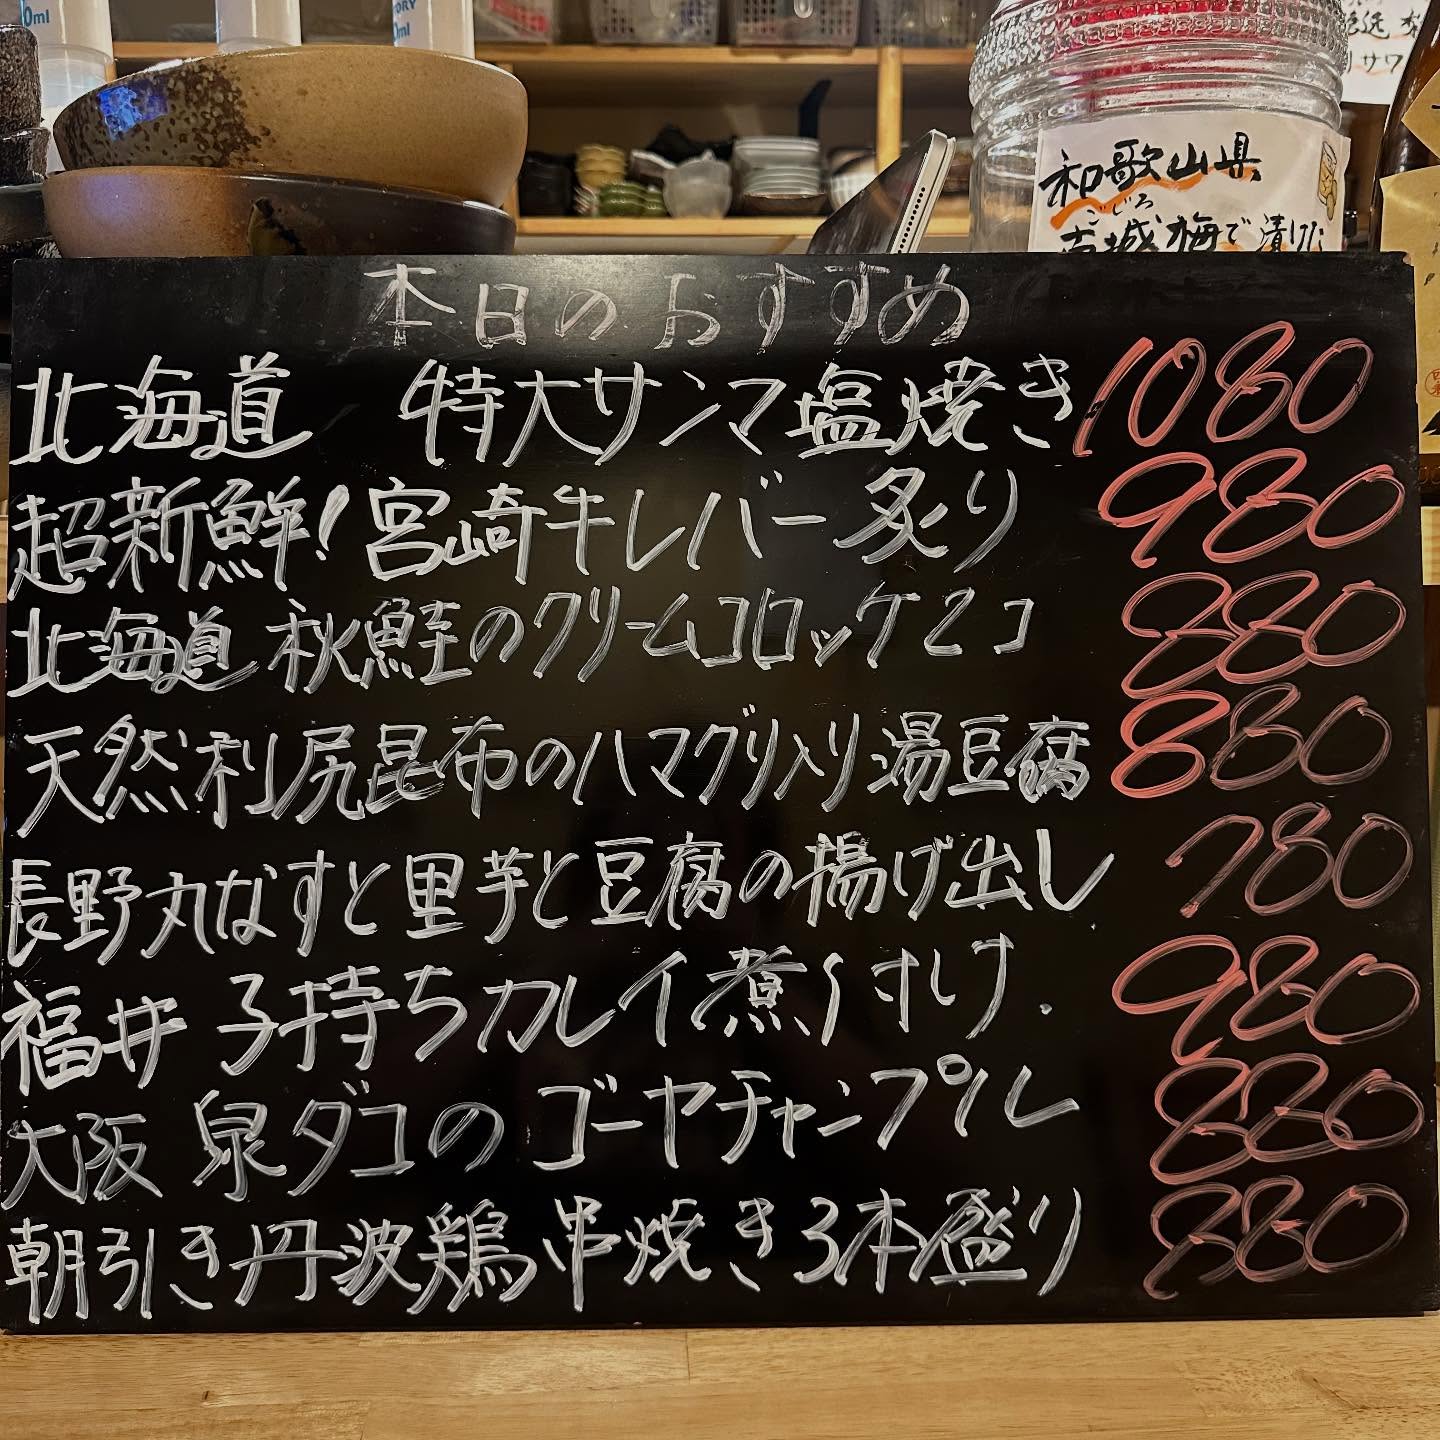 和歌山県
こじろ
古城梅で漬けた
本日のおすすめ
北海道 特大サンマ塩焼き 1080
超新鮮!宮崎牛レバー炙り 980
北海道 秋鮭のクリームコロッケ2コ 880
天然利尻昆布のハマグリ入り湯豆腐 880
長野丸なすと里芋と豆腐の揚げ出し 780
福井 子持ちカレイ煮付け 980
大阪 泉ダコのゴーヤチャンプル 880
朝引き丹波鶏串焼き3本盛り 880